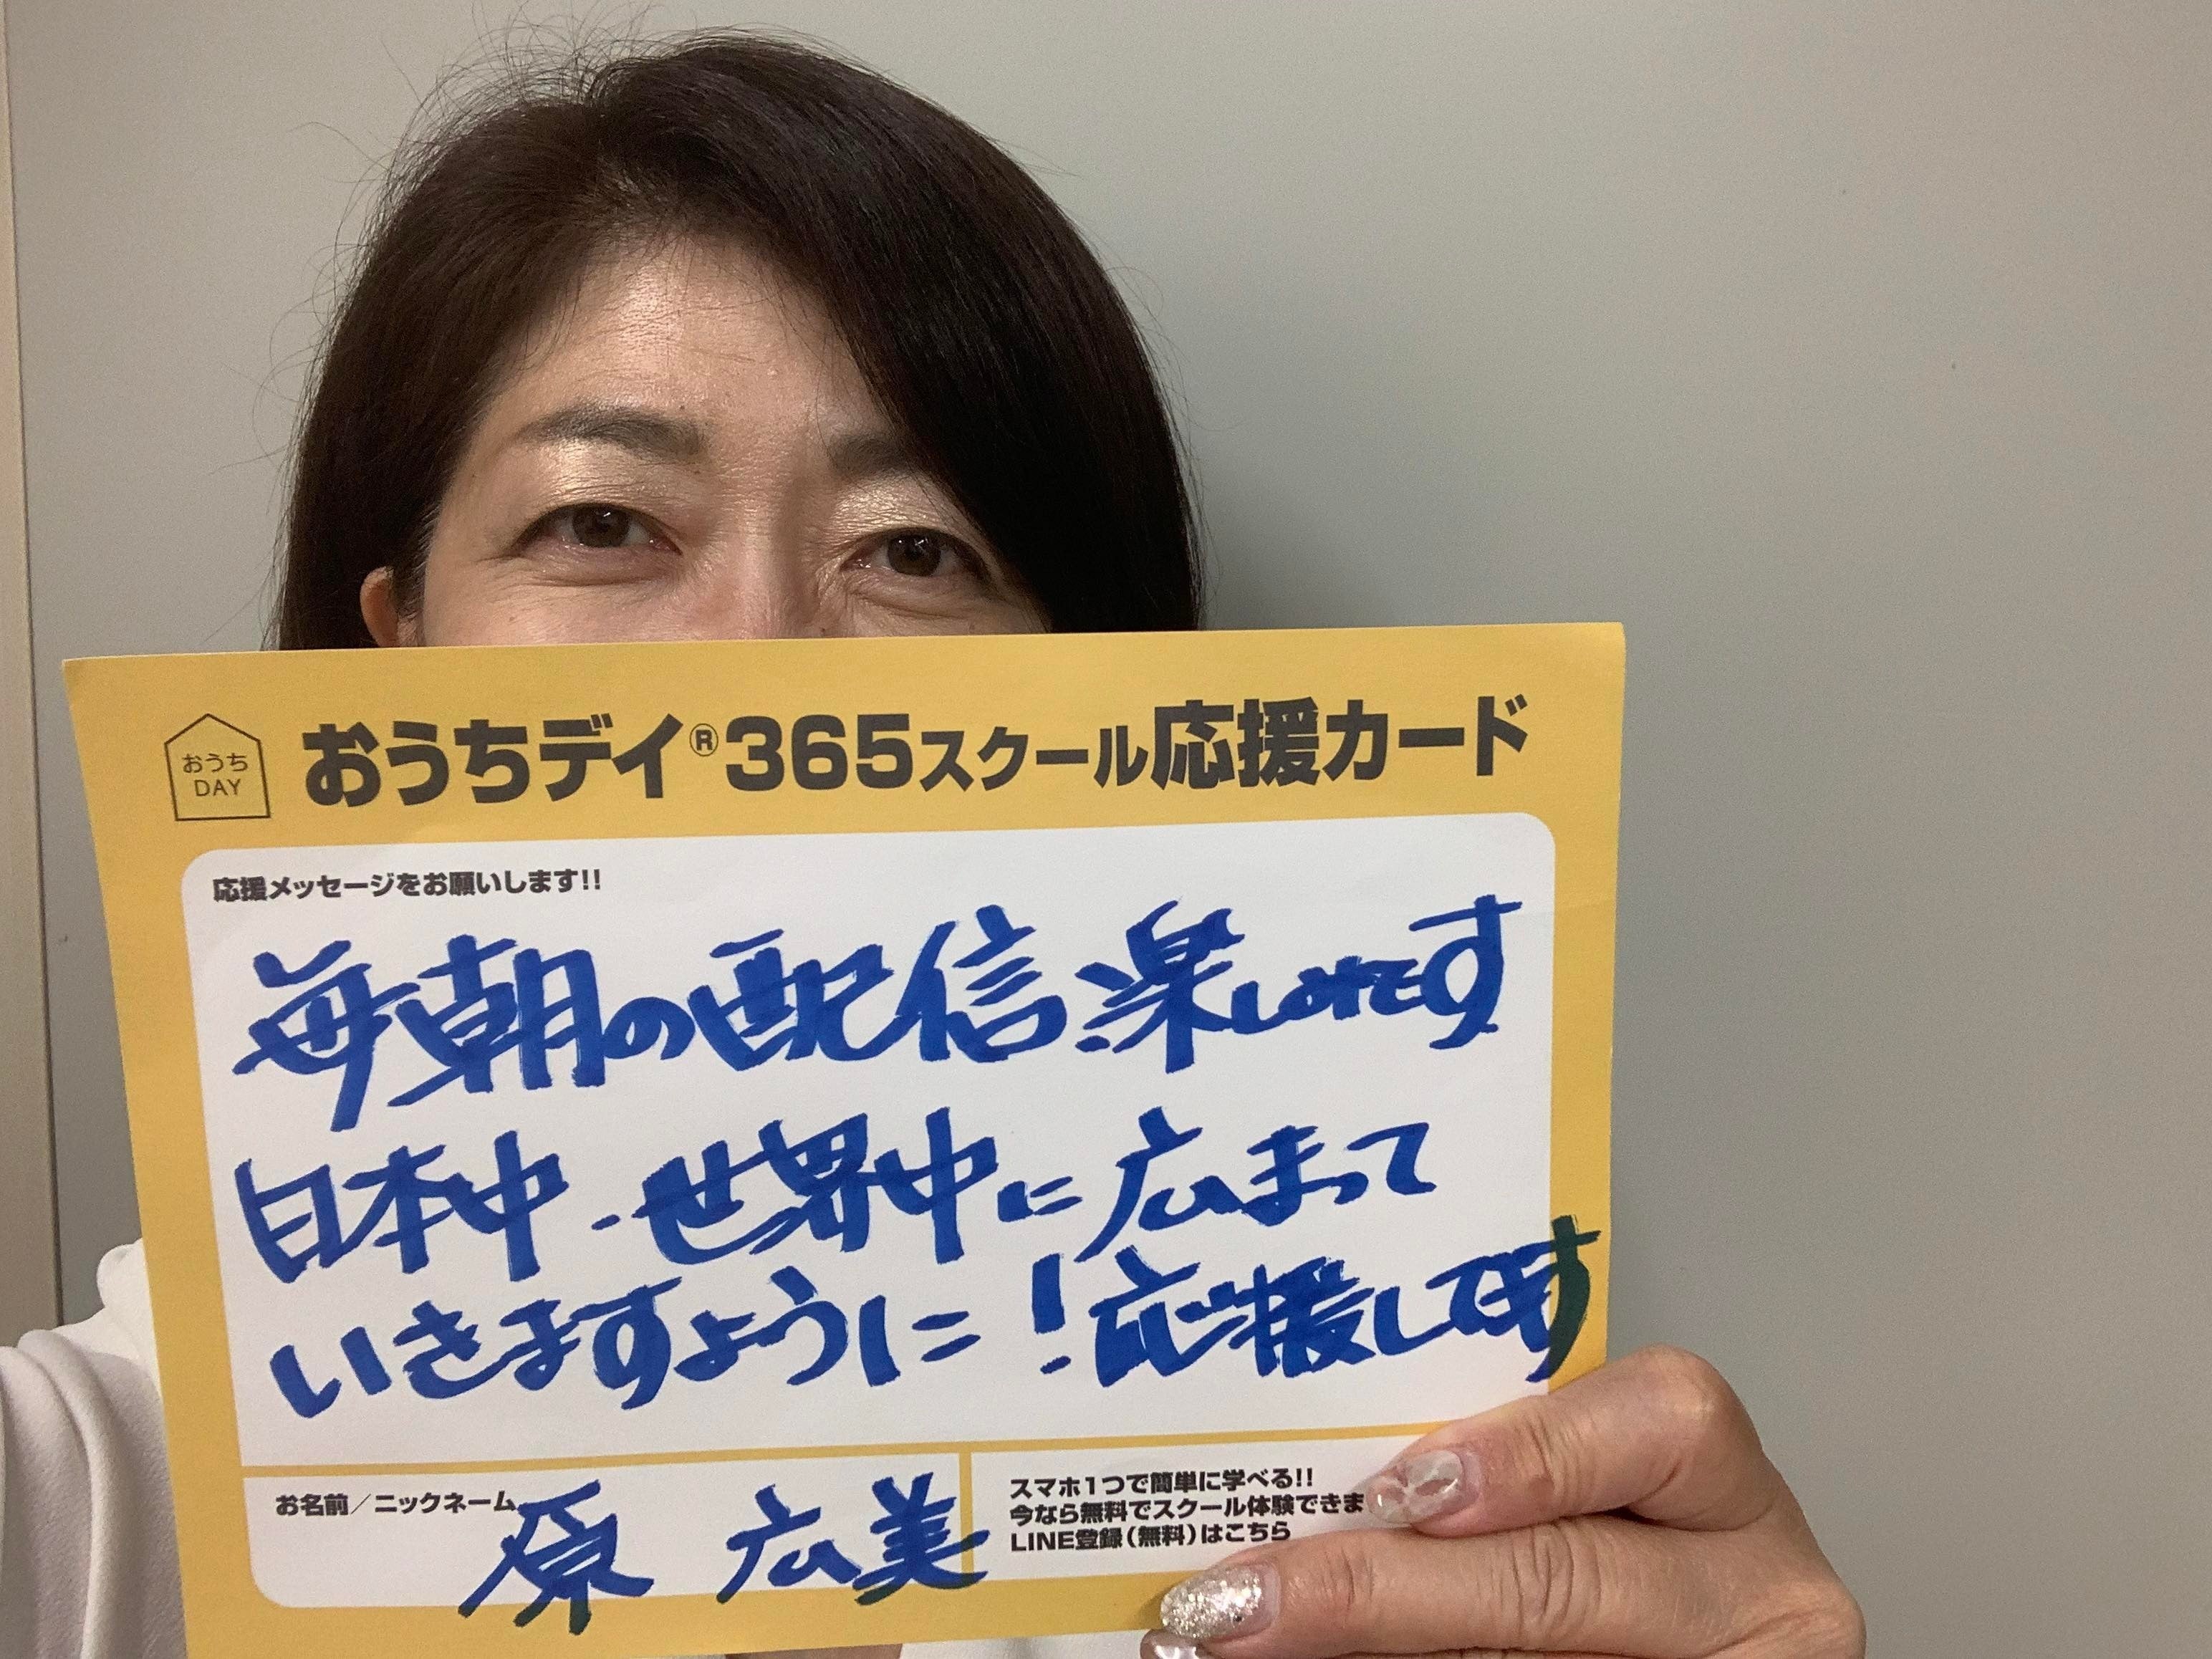 おうち
DAY
おうちデイ®365スクール応援カード
応援メッセージをお願いします!!
毎朝の配信楽しみです
日本中・世界中に広まって
いきますように!応援してます
お名前／ニックネーム
原 広美
スマホ1つで簡単に学べる!!
今なら無料でスクール体験できま
LINE登録(無料)はこちら